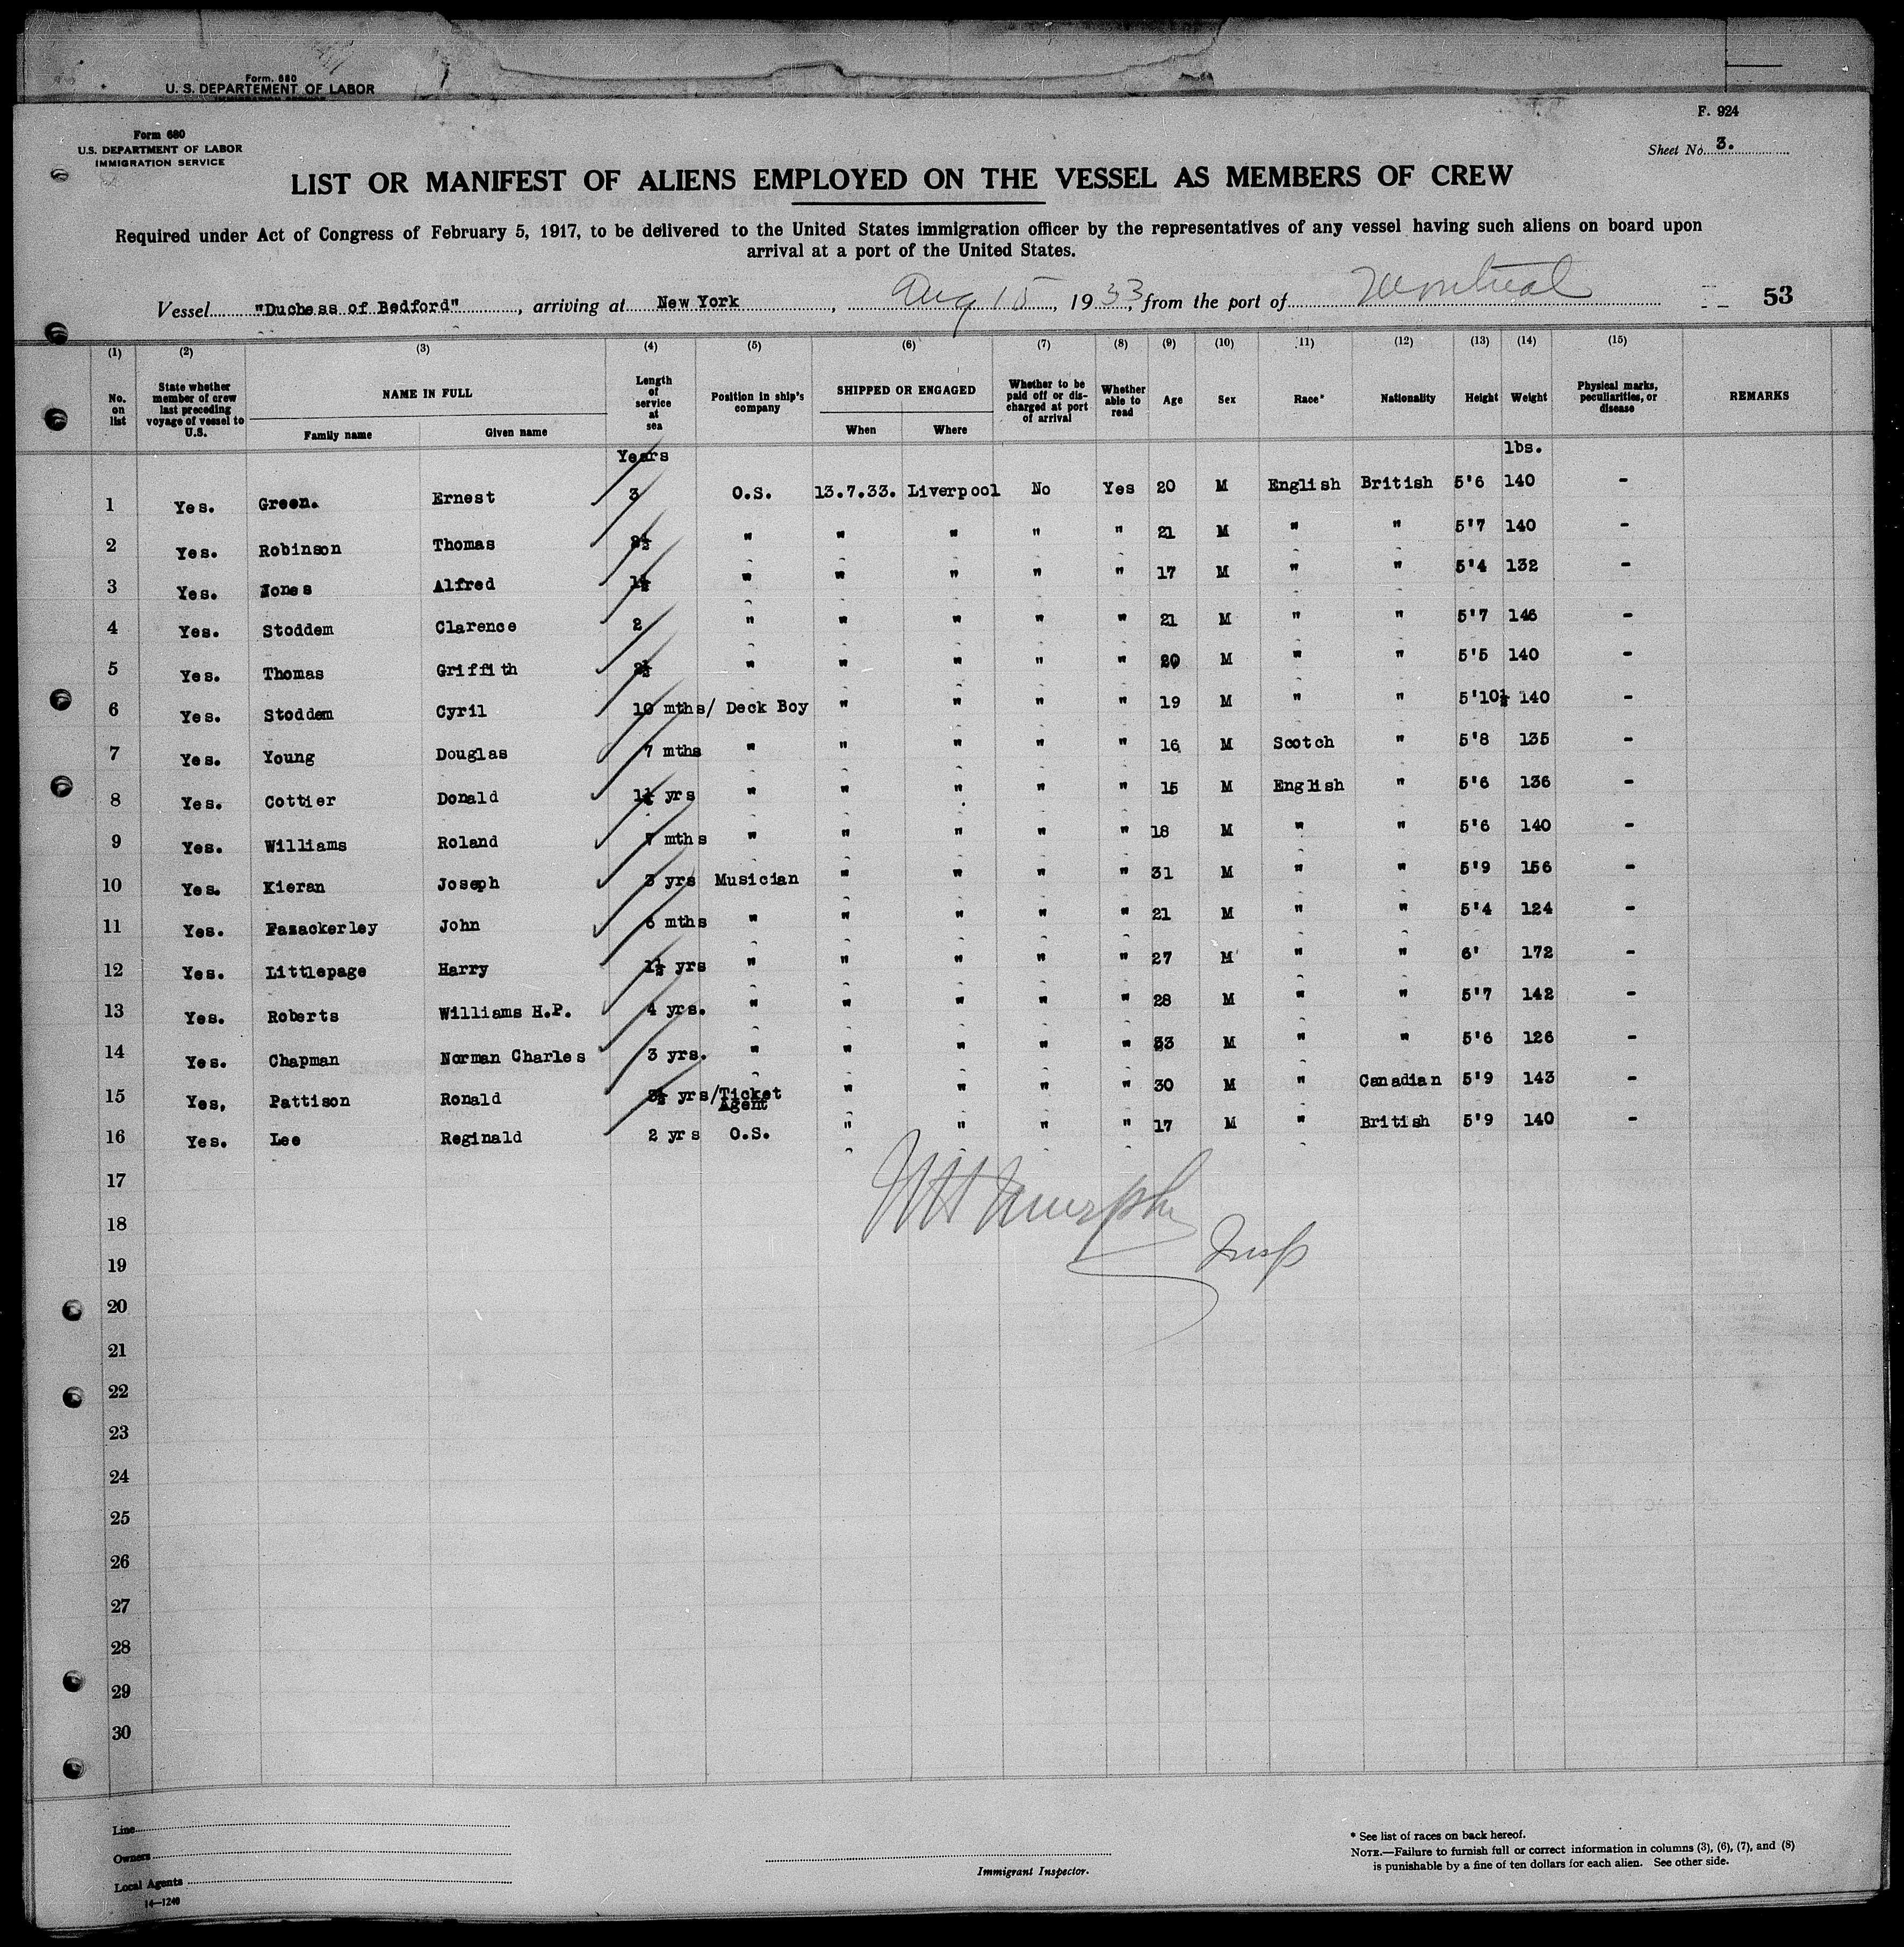 Form. 680
U. S. DEPARTEMENT OF LABOR
F. 924
Form 680
U.S. DEPARTMENT OF LABOR
IMMIGRATION SERVICE
Sheet No. 3.
LIST OR MANIFEST OF ALIENS EMPLOYED ON THE VESSEL AS MEMBERS OF CREW
Required under Act of Congress of February 5, 1917, to be delivered to the United States immigration officer by the representatives of any vessel having such aliens on board upon
arrival at a port of the United States.
Vessel "Duchess of Bedford", arriving at New York, Aug 15, 1933, from the port of Montreal 53
(1) (2) (3) (4) (5) (6) (7) (8) (9) (10) 11) (12) (13) (14) (15)
No. on list State whether member of crew last preceding voyage of vessel to U.S. NAME IN FULL Length of service at sea Position in ship's company SHIPPED OR ENGAGED Whether to be paid off or discharged at port of arrival Whether able to read Age Sex Race* Nationality Height Weight Physical marks, peculiarities, or disease REMARKS
Family name Given name When Where
Years lbs.
1 Yes. Green. Ernest 3 O.S. 13.7.33. Liverpool No Yes 20 M English British 5'6 140 -
2 Yes. Robinson Thomas " " " " " 21 M " " 5'7 140 -
3 Yes. Jones Alfred " " " " " 17 M " " 5'4 132 -
4 Yes. Stoddem Clarence 2 " " " " " 21 M " " 5'7 146 -
5 Yes. Thomas Griffith " " " " " 20 M " " 5'5 140 -
6 Yes. Stoddem Cyril 10 mths/ Deck Boy " " " " 19 M " " 5'10½ 140 -
7 Yes. Young Douglas 7 mths " " " " " 16 M Scotch " 5'8 135 -
8 Yes. Cottier Donald yrs " " " " " 15 M English " 5'6 136 -
9 Yes. Williams Roland 7 mths " " " " " 18 M " " 5'6 140 -
10 Yes. Kieran Joseph 3 yrs Musician " " " " 31 M " " 5'9 156 -
11 Yes. Fazackerley John 6 mths " " " " " 21 M " " 5'4 124 -
12 Yes. Littlepage Harry 1½ yrs " " " " " 27 M " " 6' 172 -
13 Yes. Roberts Williams H.P. 4 yrs. " " " " " 28 M " " 5'7 142 -
14 Yes. Chapman Norman Charles 3 yrs. " " " " " 33 M " " 5'6 126 -
15 Yes, Pattison Ronald yrs/Ticket Agent " " " " 30 M " Canadian 5'9 143 -
16 Yes. Lee Reginald 2 yrs O.S. " " " " 17 M " British 5'9 140 -
17
18
Murphy
19
Insp
20
21
22
23
24
25
26
27
28
29
30
Line
Owners
Local Agents
14—1240
Immigrant Inspector.
* See list of races on back hereof.
NOTE.—Failure to furnish full or correct information in columns (3), (6), (7), and (8)
is punishable by a fine of ten dollars for each alien. See other side.